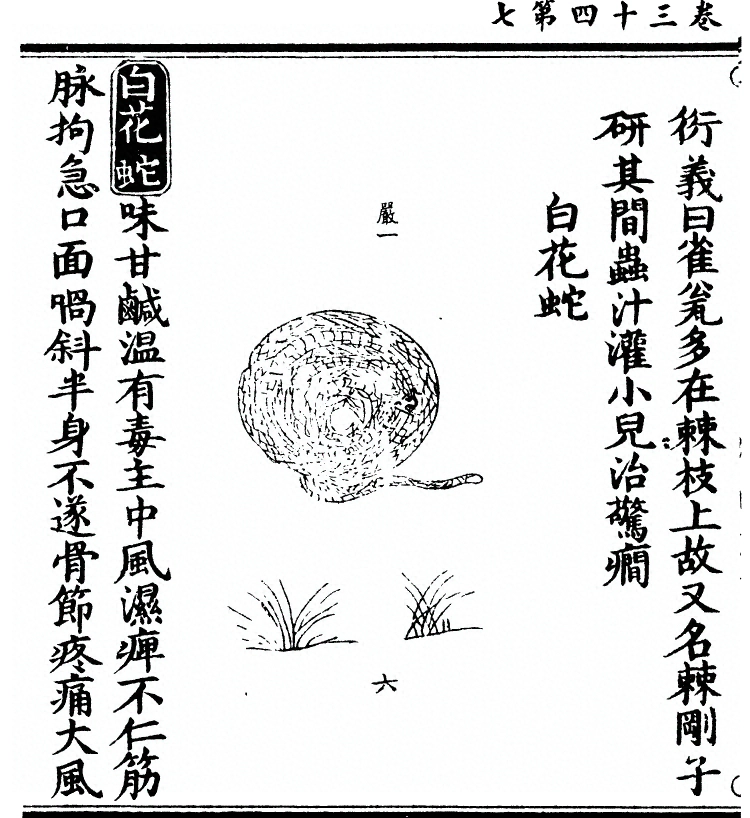 卷三十四第七
衍義曰雀瓮多在棘枝上故又名棘剛子
研其間蟲汁灌小兒治驚癇
白花蛇
嚴一
六
白花蛇味甘鹹溫有毒主中風濕痺不仁筋
脉拘急口面喎斜半身不遂骨節疼痛大風